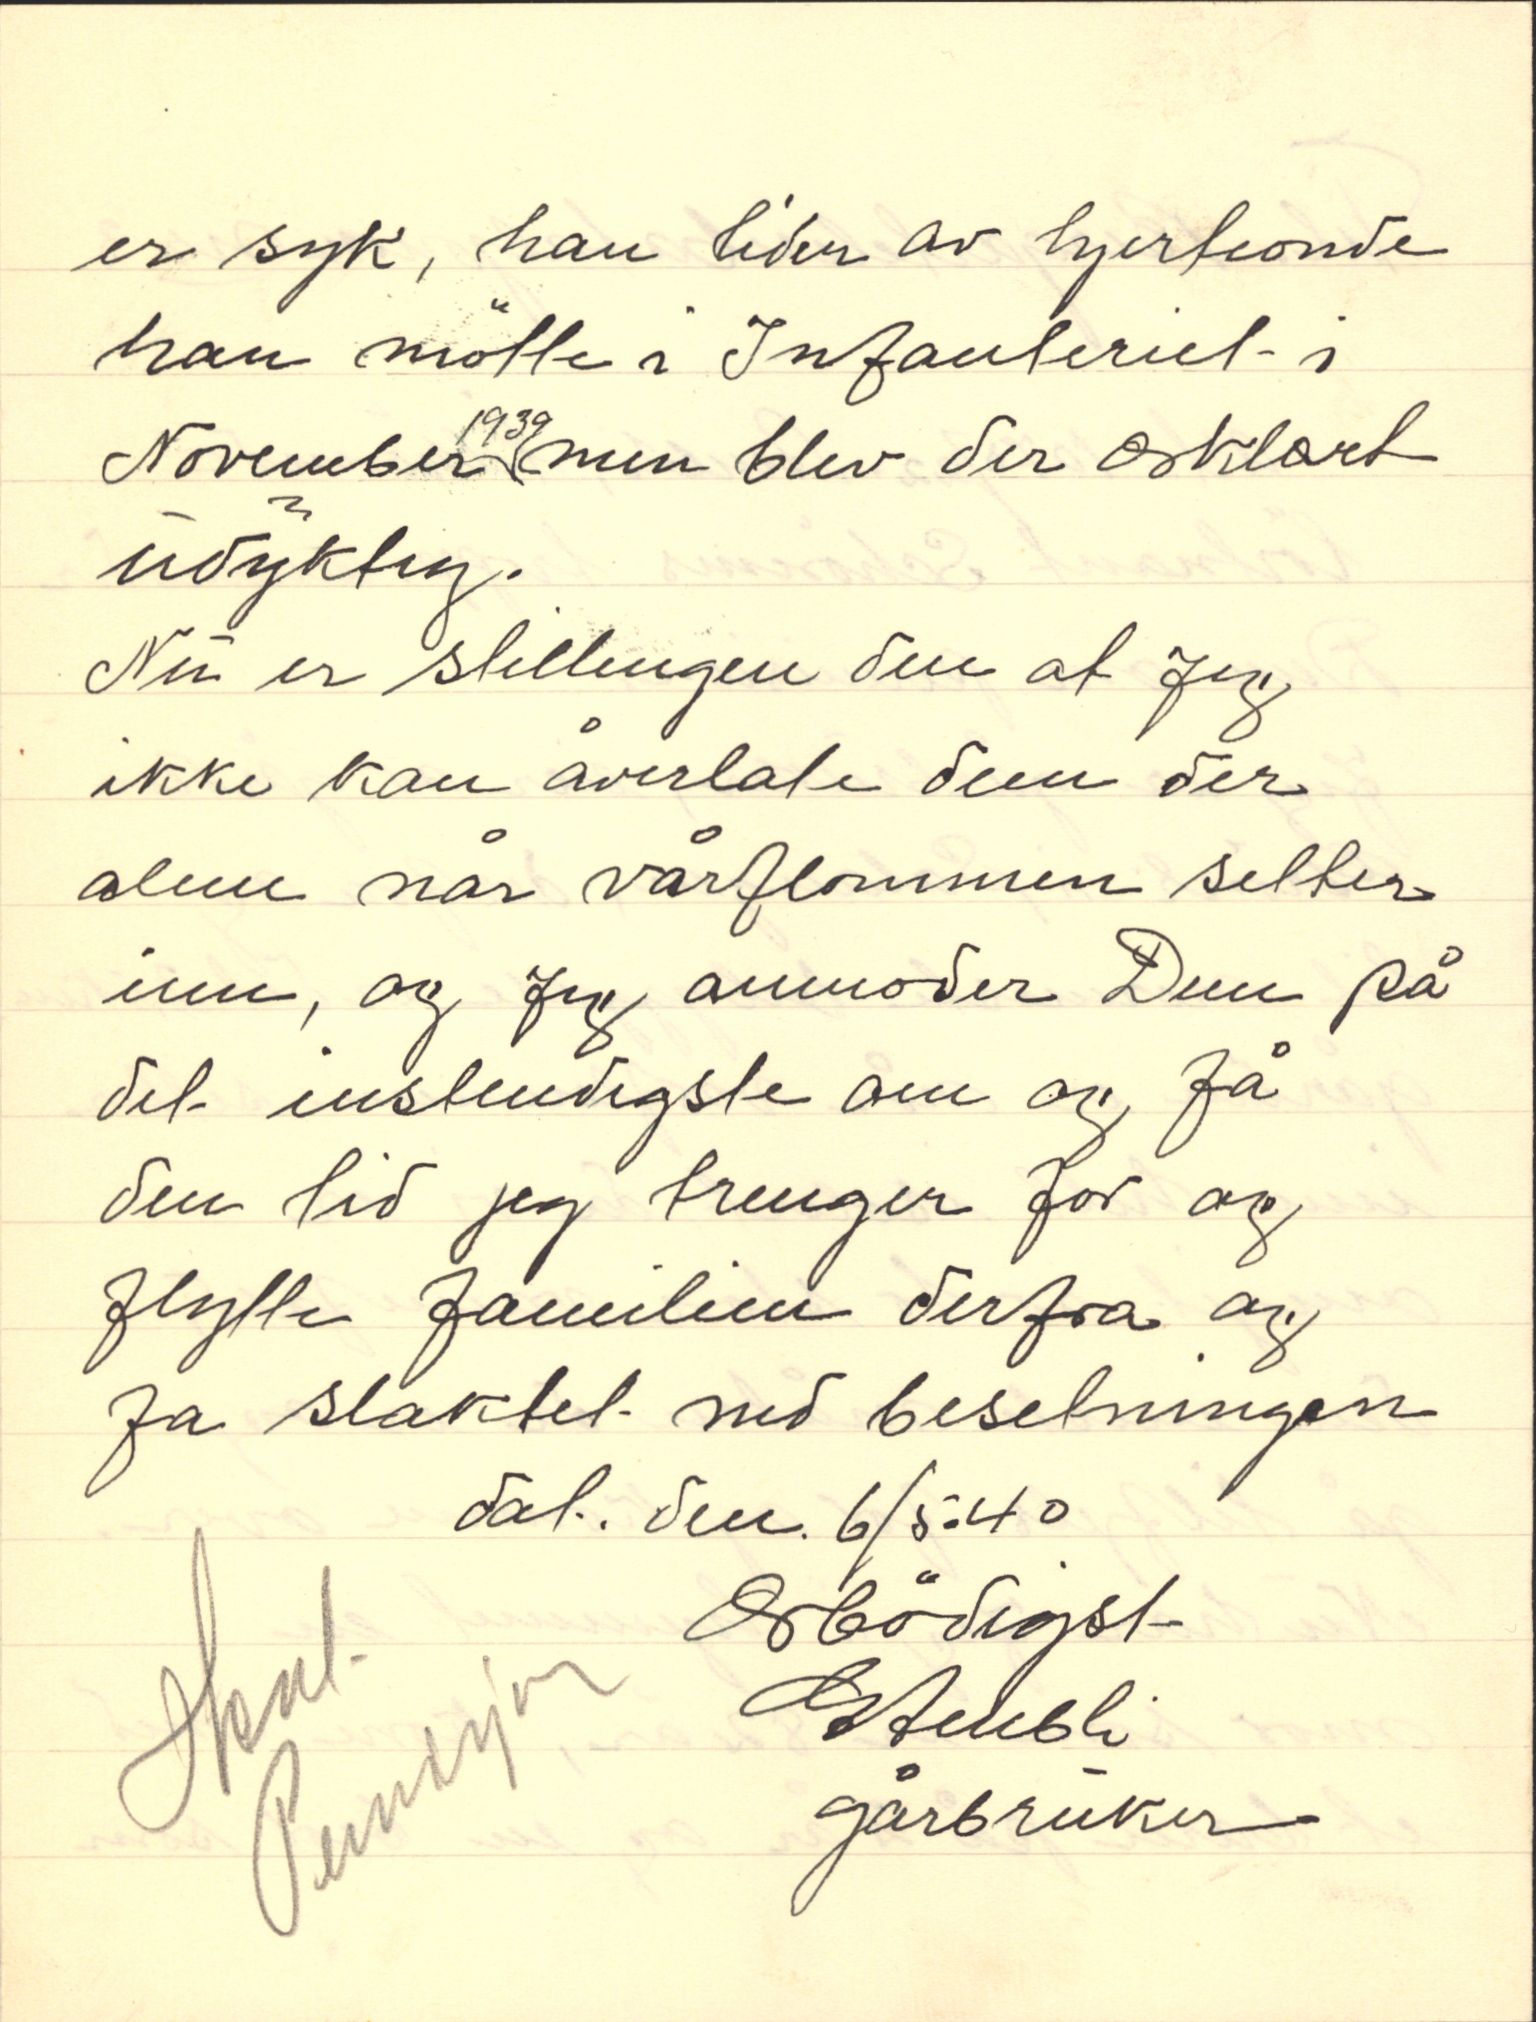 er syk, han lider av hjerteonde
han mötte i Infanteriet i
November 1939 men blev der erklært
udyktig.
Nu er stillingen den at Jeg
ikke kan åverlate dem der
alene når vårflommen setter
inn, og Jeg anmoder Dem på
det instendigste om og få
den tid jeg trenger for og
flytte familien derfra og
fa slaktet ned besetningen
dat. den. 6/5.40
Erbödigst
Stenbli
gårbruker